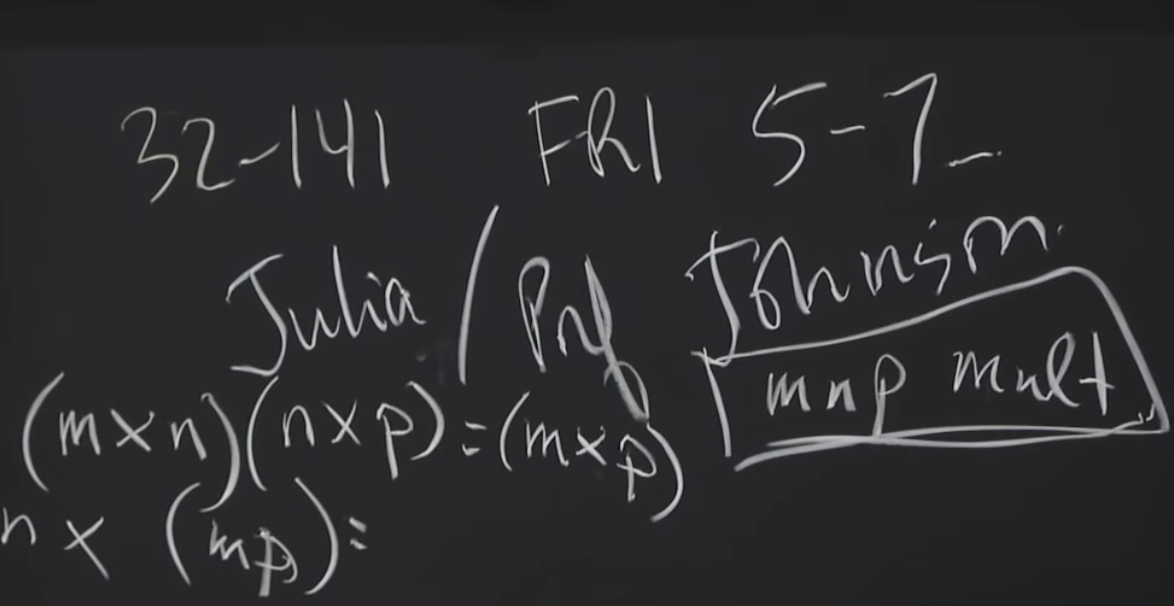 32-141 FRI 5-7
Julia / Prof Johnson
(m×n)(n×p)=(m×p) mnp mult
n × (mp)=